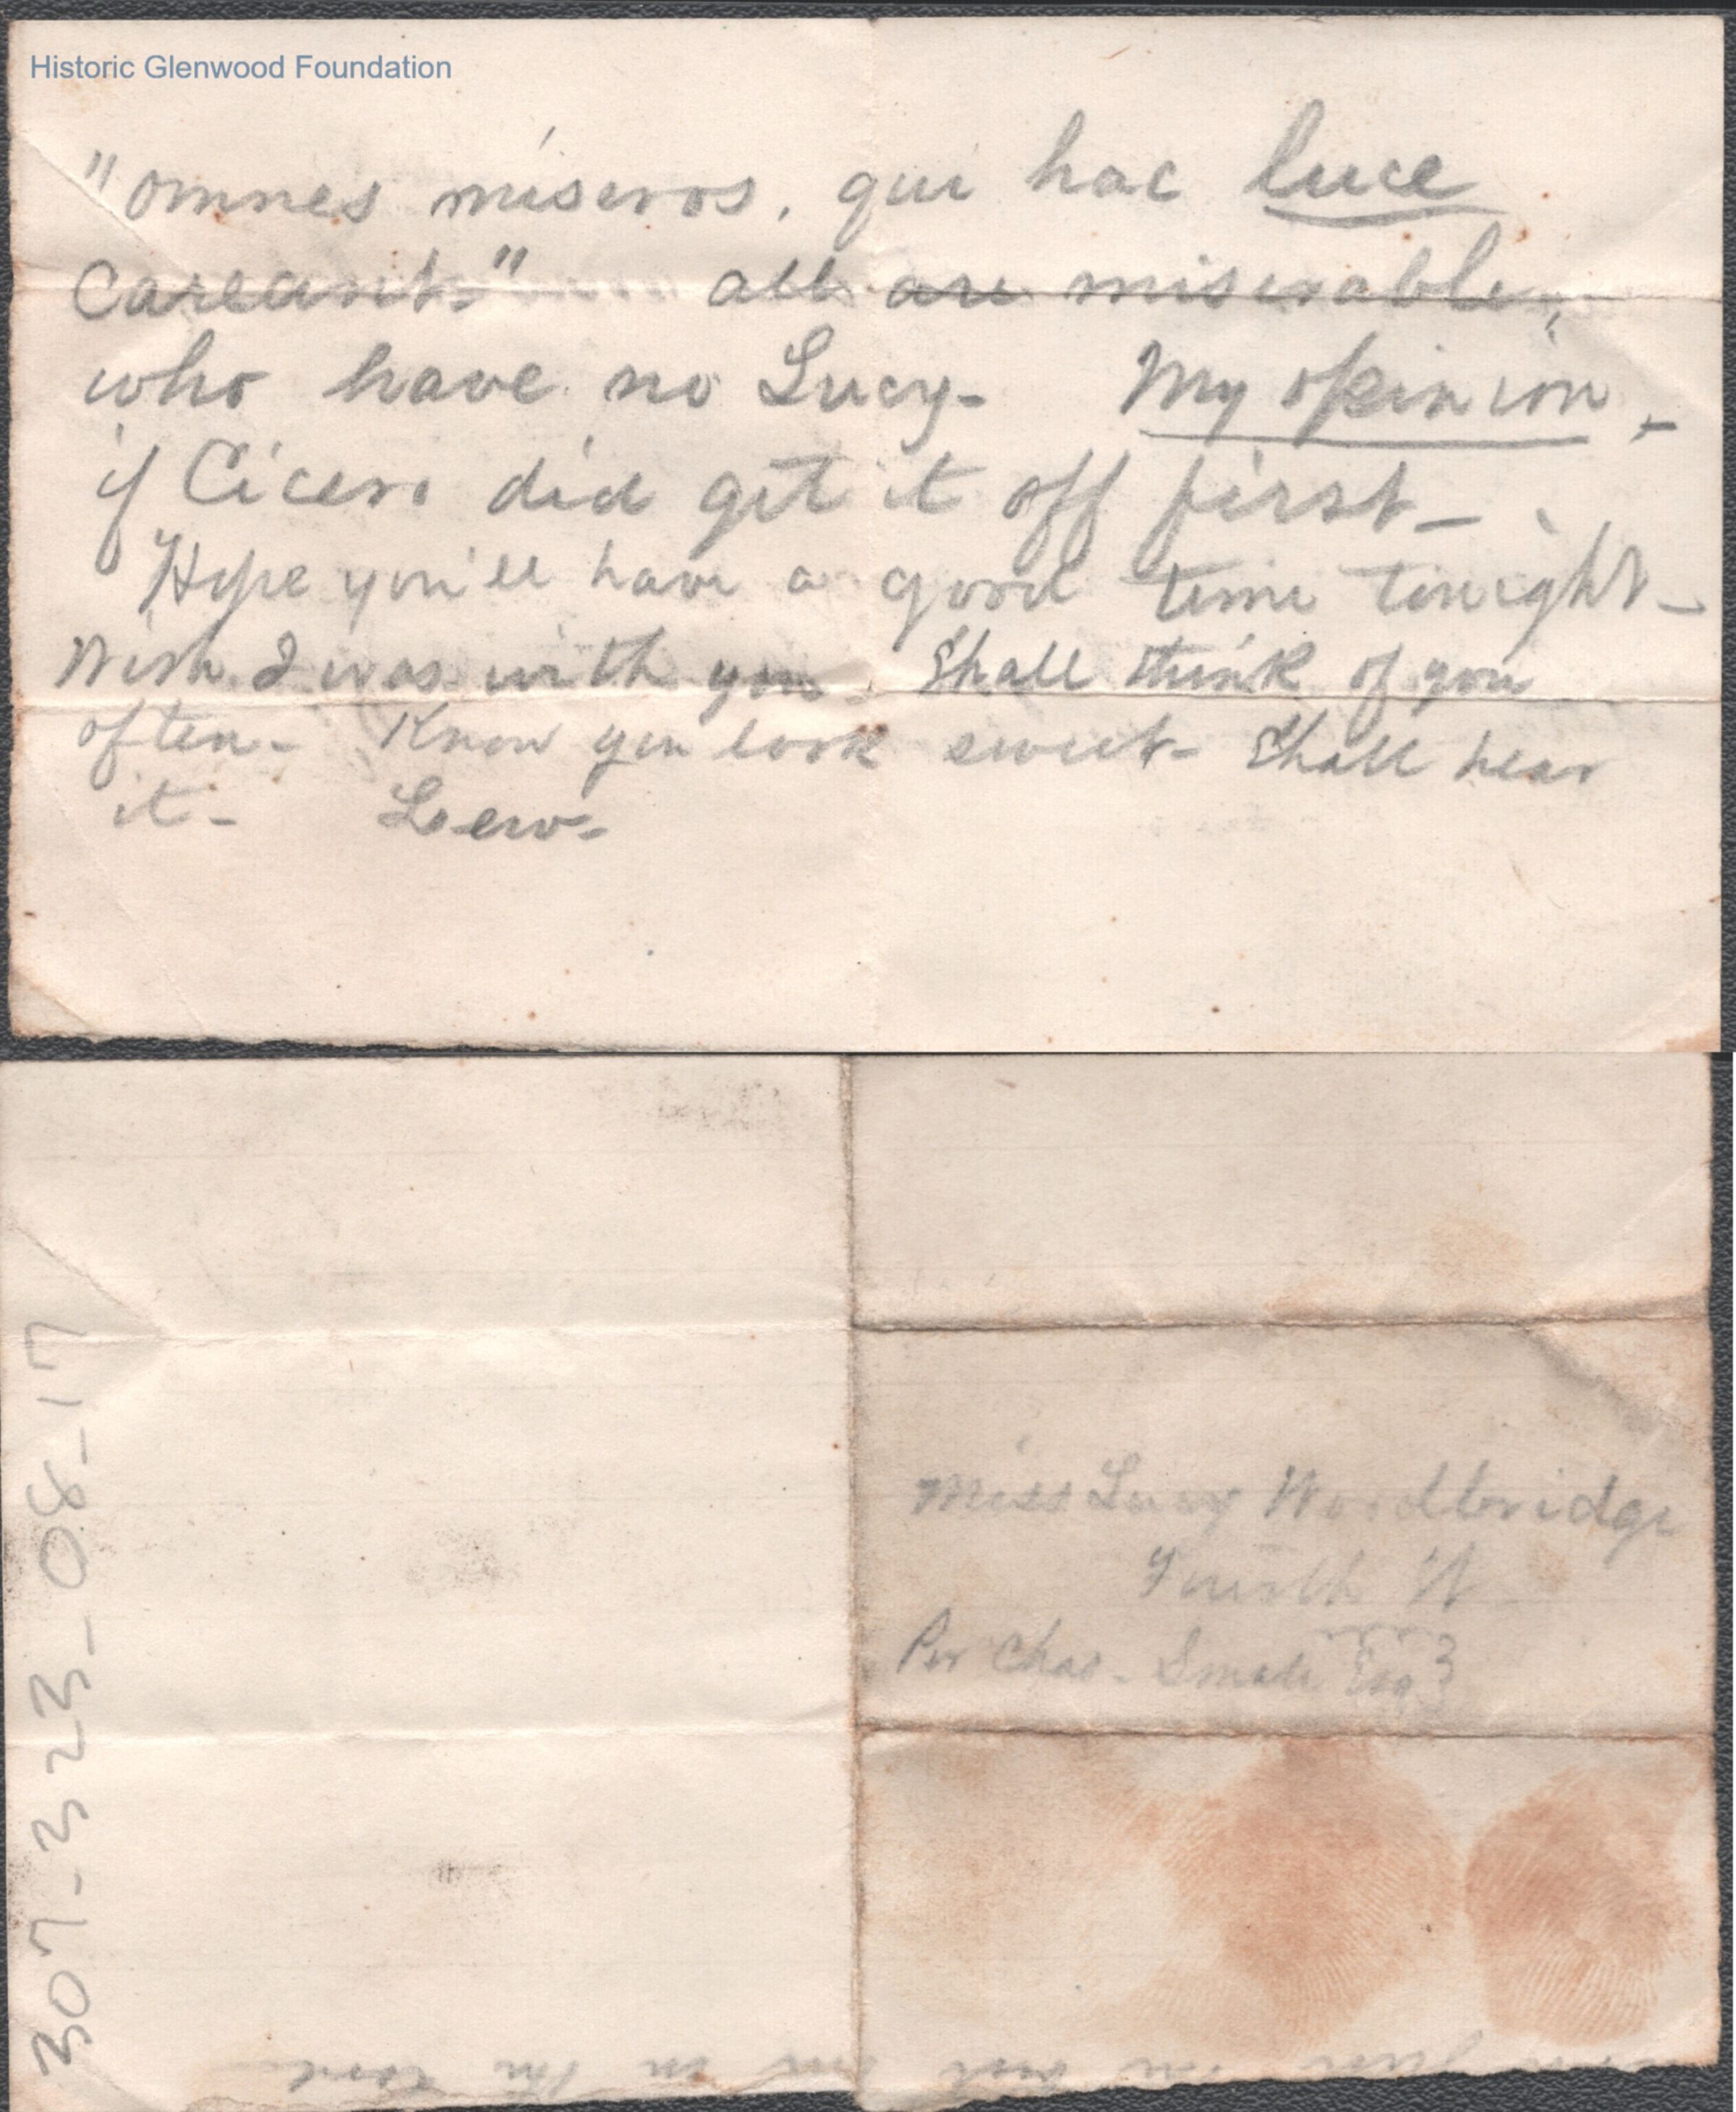 Historic Glenwood Foundation
"omnes miseros, qui hac luce
careant." all are miserable,
who have no Lucy- My opinion,-
if Cicero did get it off first-
Hope you'll have a good time tonight-
Wish I was with you. Shall think of you
often- Know you look sweet- Shall hear
it- Lew-
307-323-08-17
Miss Lucy Woodbridge
Fourth St
Per Chas. Smale Esq